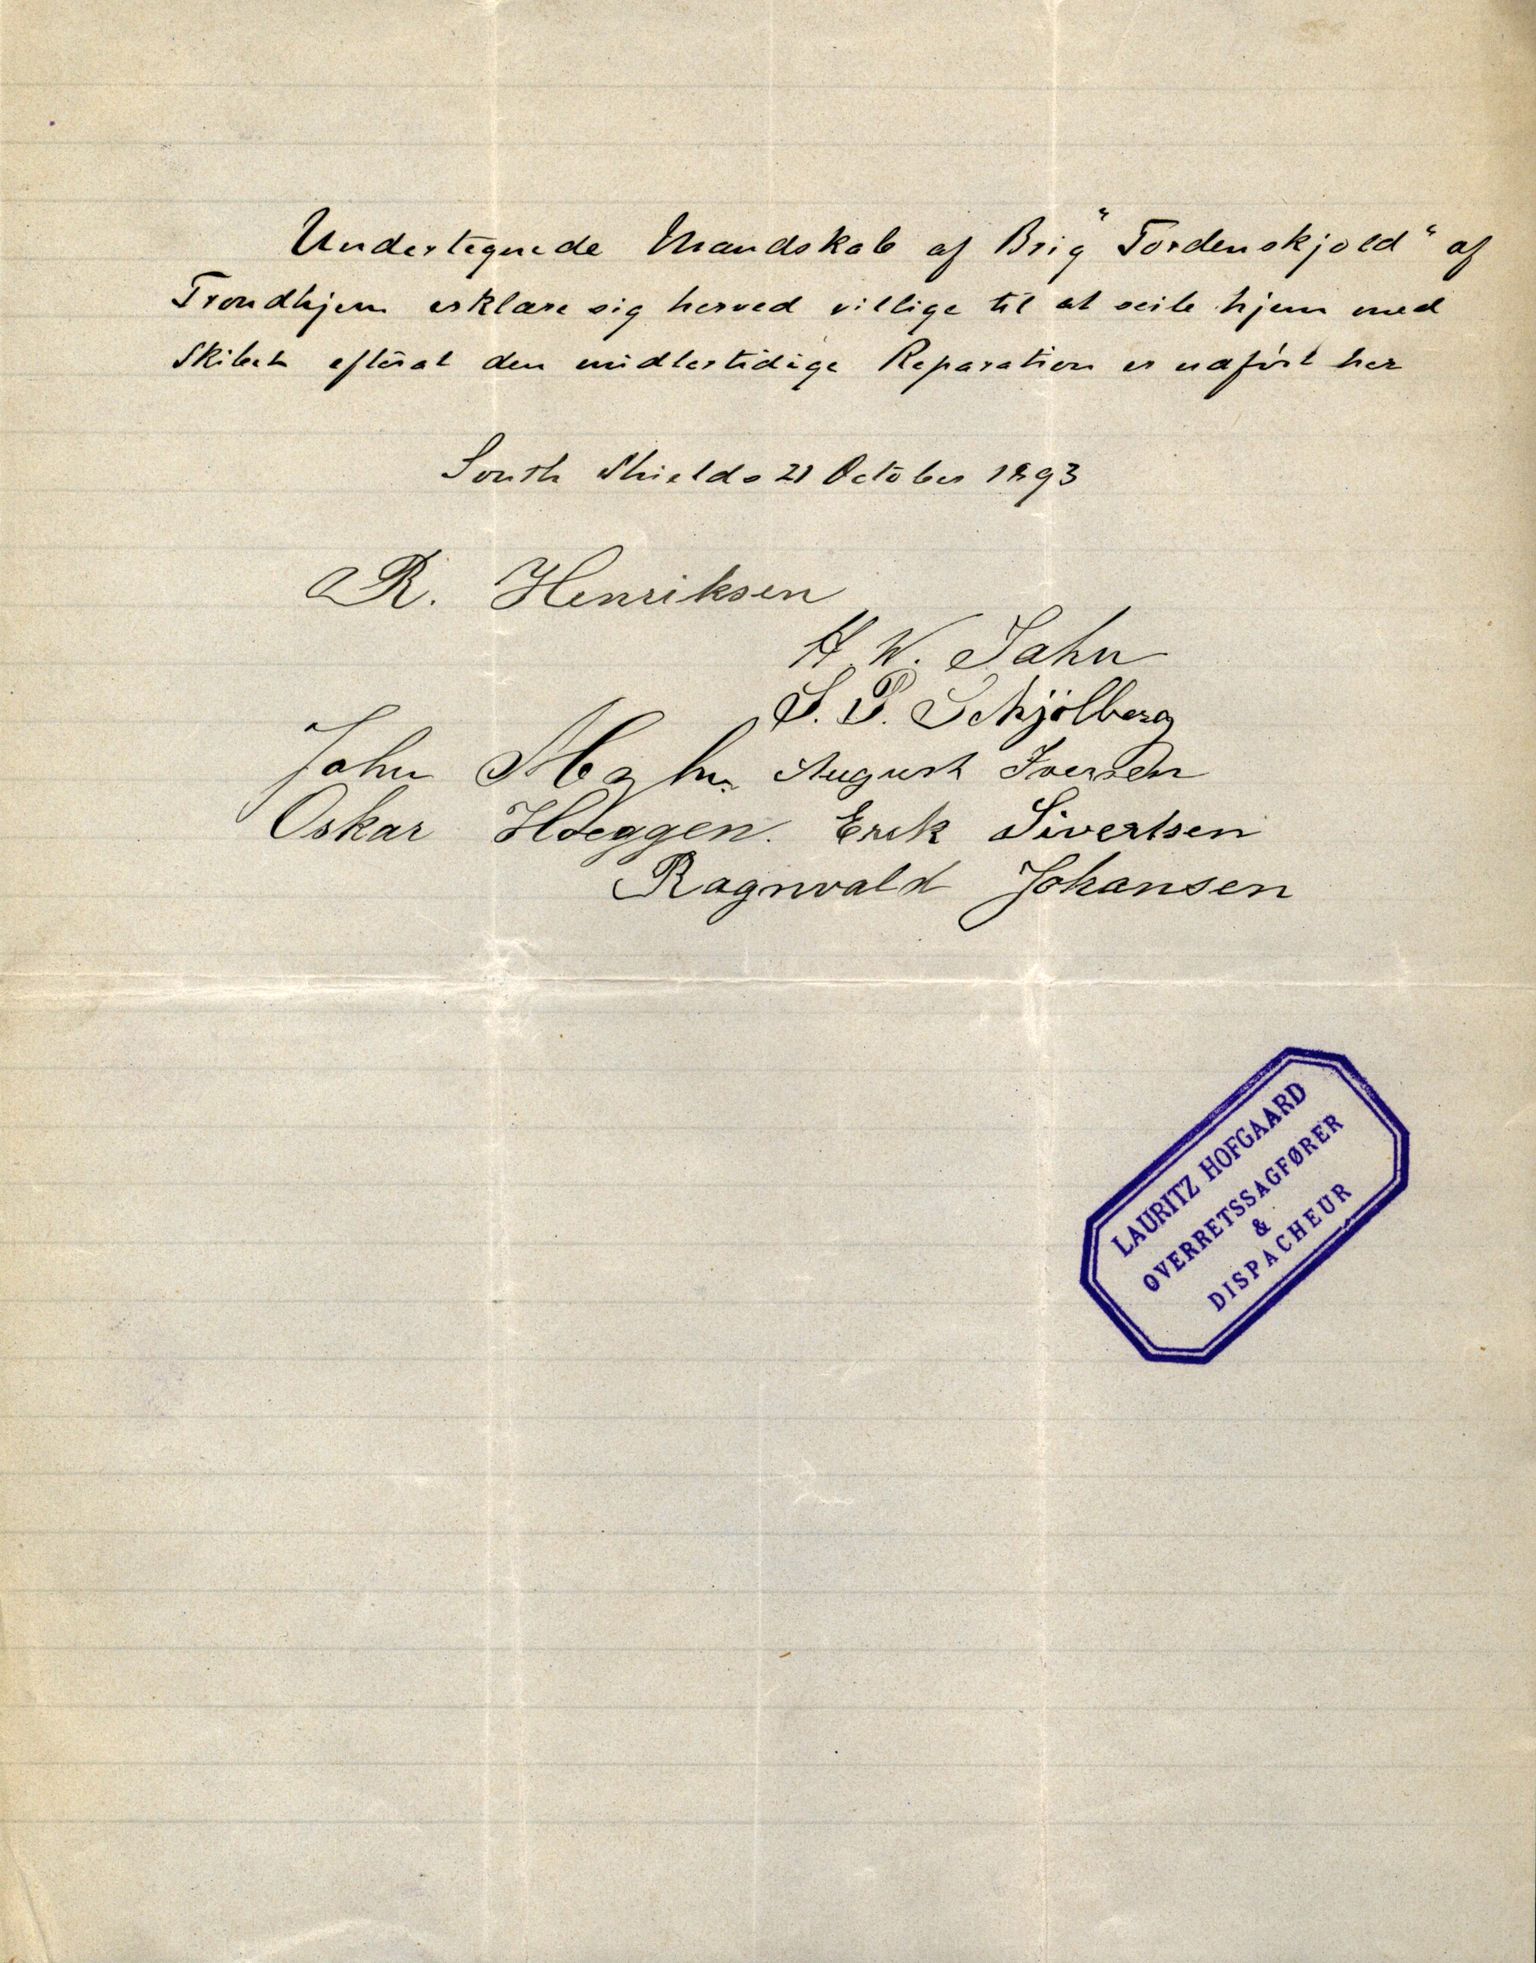 Undertegnede Mandskab af Brig "Tordenskjold" af
Trondhjem erklære sig herved villige til at seile hjem med
Skibet efterat den midlertidige Reparation er udført her
South Shields 21 October 1893
R. Henriksen
H. W. Jahn
S. P. Schjølberg
John
August Iversen
Oskar Hoeggen. Erik Sivertsen
Ragnvald Johansen
LAURITZ HOFGAARD
OVERRETSSAGFØRER
&
DISPACHEUR